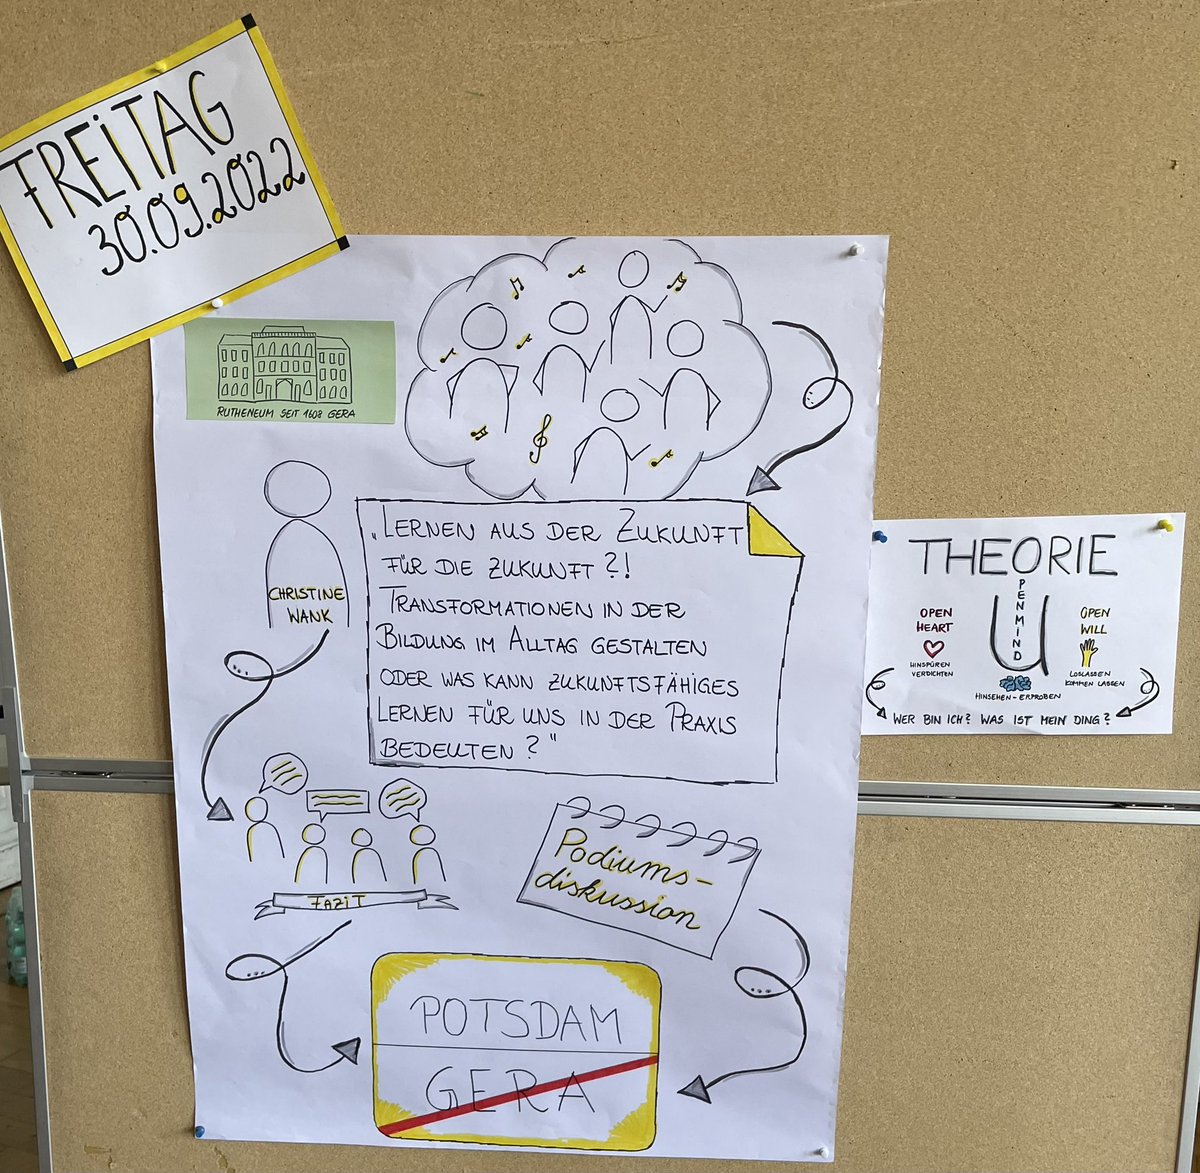 FREiTAG
30.09.2022
RUTHENEUM SEIT 1608 GERA
CHRISTINE
WANK
„LERNEN AUS DER ZUKUNFT
FÜR DIE ZUKUNFT ?!
TRANSFORMATIONEN IN DER
BILDUNG IM ALLTAG GESTALTEN
ODER WAS KANN ZUKUNFTSFÄHIGES
LERNEN FÜR UNS IN DER PRAXIS
BEDEUTEN ? "
FAZIT
Podiums-
diskussion
POTSDAM
GERA
THEORIE
U
OPEN MIND
OPEN
HEART
HINSPÜREN
VERDICHTEN
OPEN
WILL
LOSLASSEN
KOMMEN LASSEN
HINSEHEN - ERPROBEN
WER BIN ICH? WAS IST MEIN DING?